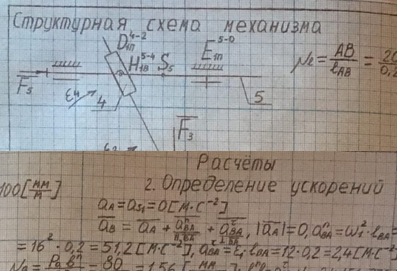 Структурная схема механизма
D_m^{4-2}
H_{1B}^{5-4} S_5
E_m^{5-0}
N_e = AB / l_{AB} = 20 / 0,2
F_5
ε_4
4
5
F_3
Расчёты
100 [мм/м]
2. Определение ускорений
a_A = a_{S1} = 0 [М·С^{-2}]
a_B = a_A + a_{BA}^n + a_{BA}^τ, |a_A| = 0, a_{BA}^n = ω_1^2 · l_{BA} =
= 16^2 · 0,2 = 51,2 [М·С^{-2}], a_{BA}^τ = ε_1 · l_{BA} = 12 · 0,2 = 2,4 [М·С^{-2}]
80 = 1,56 [мм